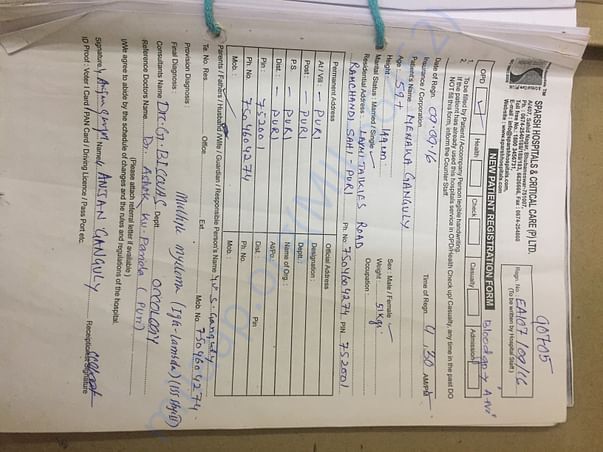 SPARSH HOSPITALS & CRITICAL CARE (P) LTD.
A/407, Saheed Nagar, Bhubaneswar-751007,
NEW PATIENT REGISTRATION FORM
Regn. No. EA107/09/16
(To be written by Hospital Staff)
90705
OPD Health Check Casualty Admission
Blood group A+ve
1. To be filled by Patient / Accompany Person legible handwriting
2. If the patient has already used this hospitals service in OPD/Health Check up/ Casualty, any time in the past DO
NOT fill this form, inform the Counter Staff
Date of Regn. 07.09.16 Time of Regn. 4.30 AM/PM
Insurance / Corporate
Patient's Name : MENAKA GANGULY
Age : 59+ Sex : Male / Female
Height : 149 cm Weight : 51kg.
Marital Status : Married / Single Occupation :
Residential Address : LAXMI TALKIES ROAD
RAMCHANDI SAHI - PURI Ph. No. 7504604274 PIN. 752001
Permanent Address Official Address
At / Vill - PURI Designation :
Post : - PURI Deptt :
P.S. - PURI Name of Org :
Dist. - PURI At/Po.
Pin : 752001 Dist. : Pin
Ph. No. 7504604274 Ph. No.
Mob : Mob. :
Parents / Fathers / Husband / Wife / Guardian / Responsible Person's Name S. Ganguly
Te. No. Res. Office Ext. Mob. No. 7504604274
Provision Diagnosis :
Final Diagnosis : Multiple myeloma (IgA-lambda) (ISS stg III)
Consultants Name : DR. G. BISWAS Deptt ONCOLOGY
Reference Doctors Name Dr. Ashok Ku. Panda (PURI)
(Please attach referral letter if available)
I/We agree to abide by the schedule of changes and the rules and regulations of the hospital.
Signature Anjan Ganguly Name ANJAN GANGULY Receiptionist Signature
ID Proof : Voter I Card / PAN Card / Driving Licence / Pass Port etc.